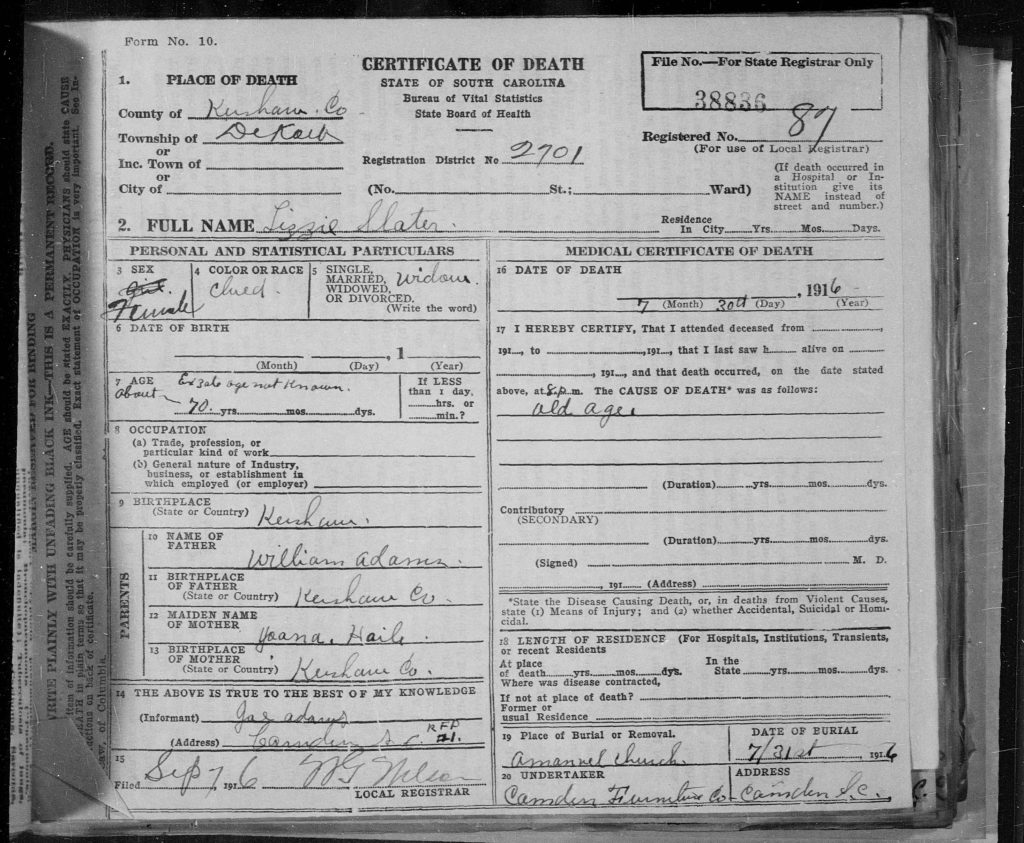 Form No. 10.
CERTIFICATE OF DEATH
STATE OF SOUTH CAROLINA
Bureau of Vital Statistics
State Board of Health
File No.—For State Registrar Only
38836
Registered No. 87
(For use of Local Registrar)
1. PLACE OF DEATH
County of Kershaw Co
Township of DeKalb
or
Inc. Town of
or
City of
Registration District No 2701
(No. St.; Ward)
(If death occurred in
a Hospital or In-
stitution give its
NAME instead of
street and number.)
2. FULL NAME Lizzie Slater.
Residence
In City Yrs. Mos. Days.
PERSONAL AND STATISTICAL PARTICULARS
3 SEX
Female
4 COLOR OR RACE
5 SINGLE,
MARRIED,
WIDOWED,
OR DIVORCED.
(Write the word)
Widow.
6 DATE OF BIRTH
, 1
(Month) (Day) (Year)
7 AGE
about
age not Known.
70. yrs. mos. dys.
If LESS
than 1 day,
hrs. or
min.?
8 OCCUPATION
(a) Trade, profession, or
particular kind of work
(b) General nature of Industry,
business, or establishment in
which employed (or employer)
9 BIRTHPLACE
(State or Country) Kershaw.
PARENTS
10 NAME OF
FATHER
William Adams.
11 BIRTHPLACE
OF FATHER
(State or Country) Kershaw Co.
12 MAIDEN NAME
OF MOTHER
Yoana. Haile.
13 BIRTHPLACE
OF MOTHER
(State or Country) Kershaw Co.
14 THE ABOVE IS TRUE TO THE BEST OF MY KNOWLEDGE
(Informant) Jas adams
(Address) Camden S.C. RFD #1.
15
Filed Sep 7, 1916 W G Nelson
LOCAL REGISTRAR
MEDICAL CERTIFICATE OF DEATH
16 DATE OF DEATH
7 30th , 1916
(Month) (Day) (Year)
17 I HEREBY CERTIFY, That I attended deceased from
191 , to ,191 , that I last saw h alive on
, 191 , and that death occurred, on the date stated
above, at 8 p. m. The CAUSE OF DEATH* was as follows:
old age.
(Duration) yrs. mos. dys.
Contributory
(SECONDARY)
(Duration) yrs. mos. dys.
(Signed) M. D.
, 191 (Address)
*State the Disease Causing Death, or, in deaths from Violent Causes,
state (1) Means of Injury; and (2) whether Accidental, Suicidal or Homi-
cidal.
18 LENGTH OF RESIDENCE (For Hospitals, Institutions, Transients,
or recent Residents
At place
of death yrs. mos. dys.
In the
State yrs. mos. dys.
Where was disease contracted,
If not at place of death?
Former or
usual Residence
19 Place of Burial or Removal.
Amanuel Church.
DATE OF BURIAL
7/31st 1916
20 UNDERTAKER
Camden Furniture Co
ADDRESS
Camden S.C.
MARGIN RESERVED FOR BINDING
WRITE PLAINLY WITH UNFADING BLACK INK—THIS IS A PERMANENT RECORD.
item of information should be carefully supplied. AGE should be stated EXACTLY. PHYSICIANS should state CAUSE
DEATH in plain terms so that it may be properly classified. Exact statement of OCCUPATION is very important. See In-
structions on back of certificate.
of Columbia.